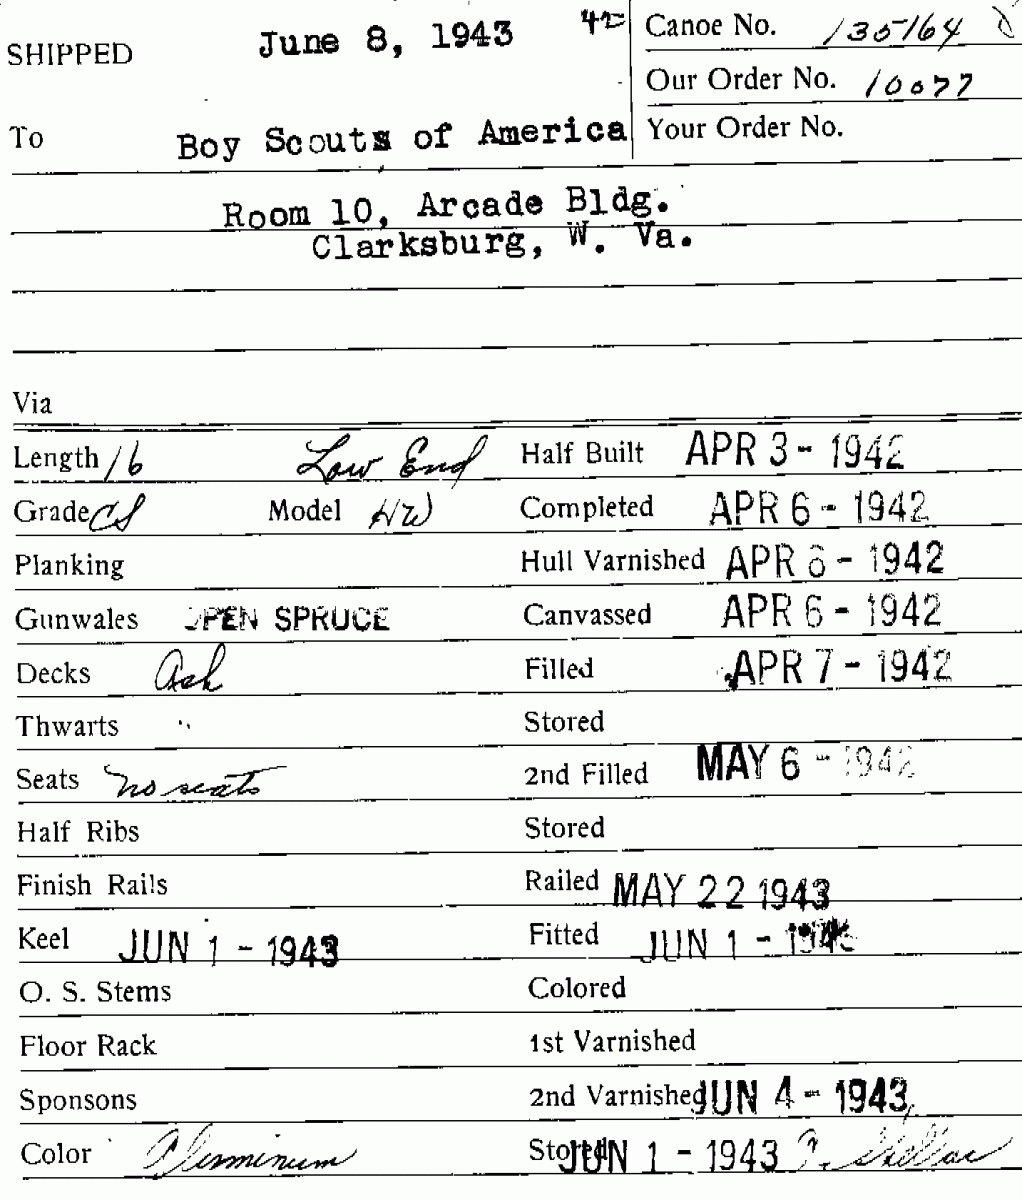 SHIPPED June 8, 1943 42 Canoe No. 135164
Our Order No. 10077
To Boy Scouts of America Your Order No.
Room 10, Arcade Bldg.
Clarksburg, W. Va.
Via
Length 16 Low End Half Built APR 3 - 1942
Grade CS Model HW Completed APR 6 - 1942
Planking Hull Varnished APR 6 - 1942
Gunwales OPEN SPRUCE Canvassed APR 6 - 1942
Decks Ash Filled APR 7 - 1942
Thwarts " Stored
Seats no seats 2nd Filled MAY 6 - 1942
Half Ribs Stored
Finish Rails Railed MAY 22 1943
Keel JUN 1 - 1943 Fitted JUN 1 - 1943
O. S. Stems Colored
Floor Rack 1st Varnished
Sponsons 2nd Varnished JUN 4 - 1943
Color Aluminum Stored JUN 1 - 1943 Shellac